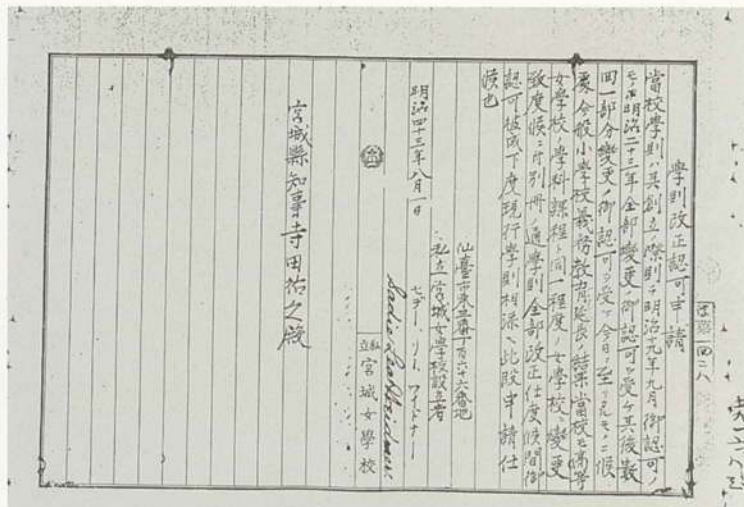 學則改正認可申請
當校學則ハ其創立ノ際則チ明治十九年九月御認可ノ
モノ明治二十三年全部變更ノ御認可ヲ受ケ其後數
回一部分變更ノ御認可ヲ受ケ今日ニ至リタルモノニ候
處今般小學校義務教育延長ノ結果當校モ高等
女學校ノ學科課程ト同一程度ノ女學校ニ變更
致度候ニ付別冊ノ通學則全部改正仕度候間御
認可被成下度現行學則相添ヘ此段申請仕
候也
仙臺市東三番丁百六十六番地
私立宮城女學校設立者
セデー、リー、ワイドナー
Sadie Lea Weidner
明治四十三年八月一日
私立宮城女學校
宮城縣知事寺田祐之殿